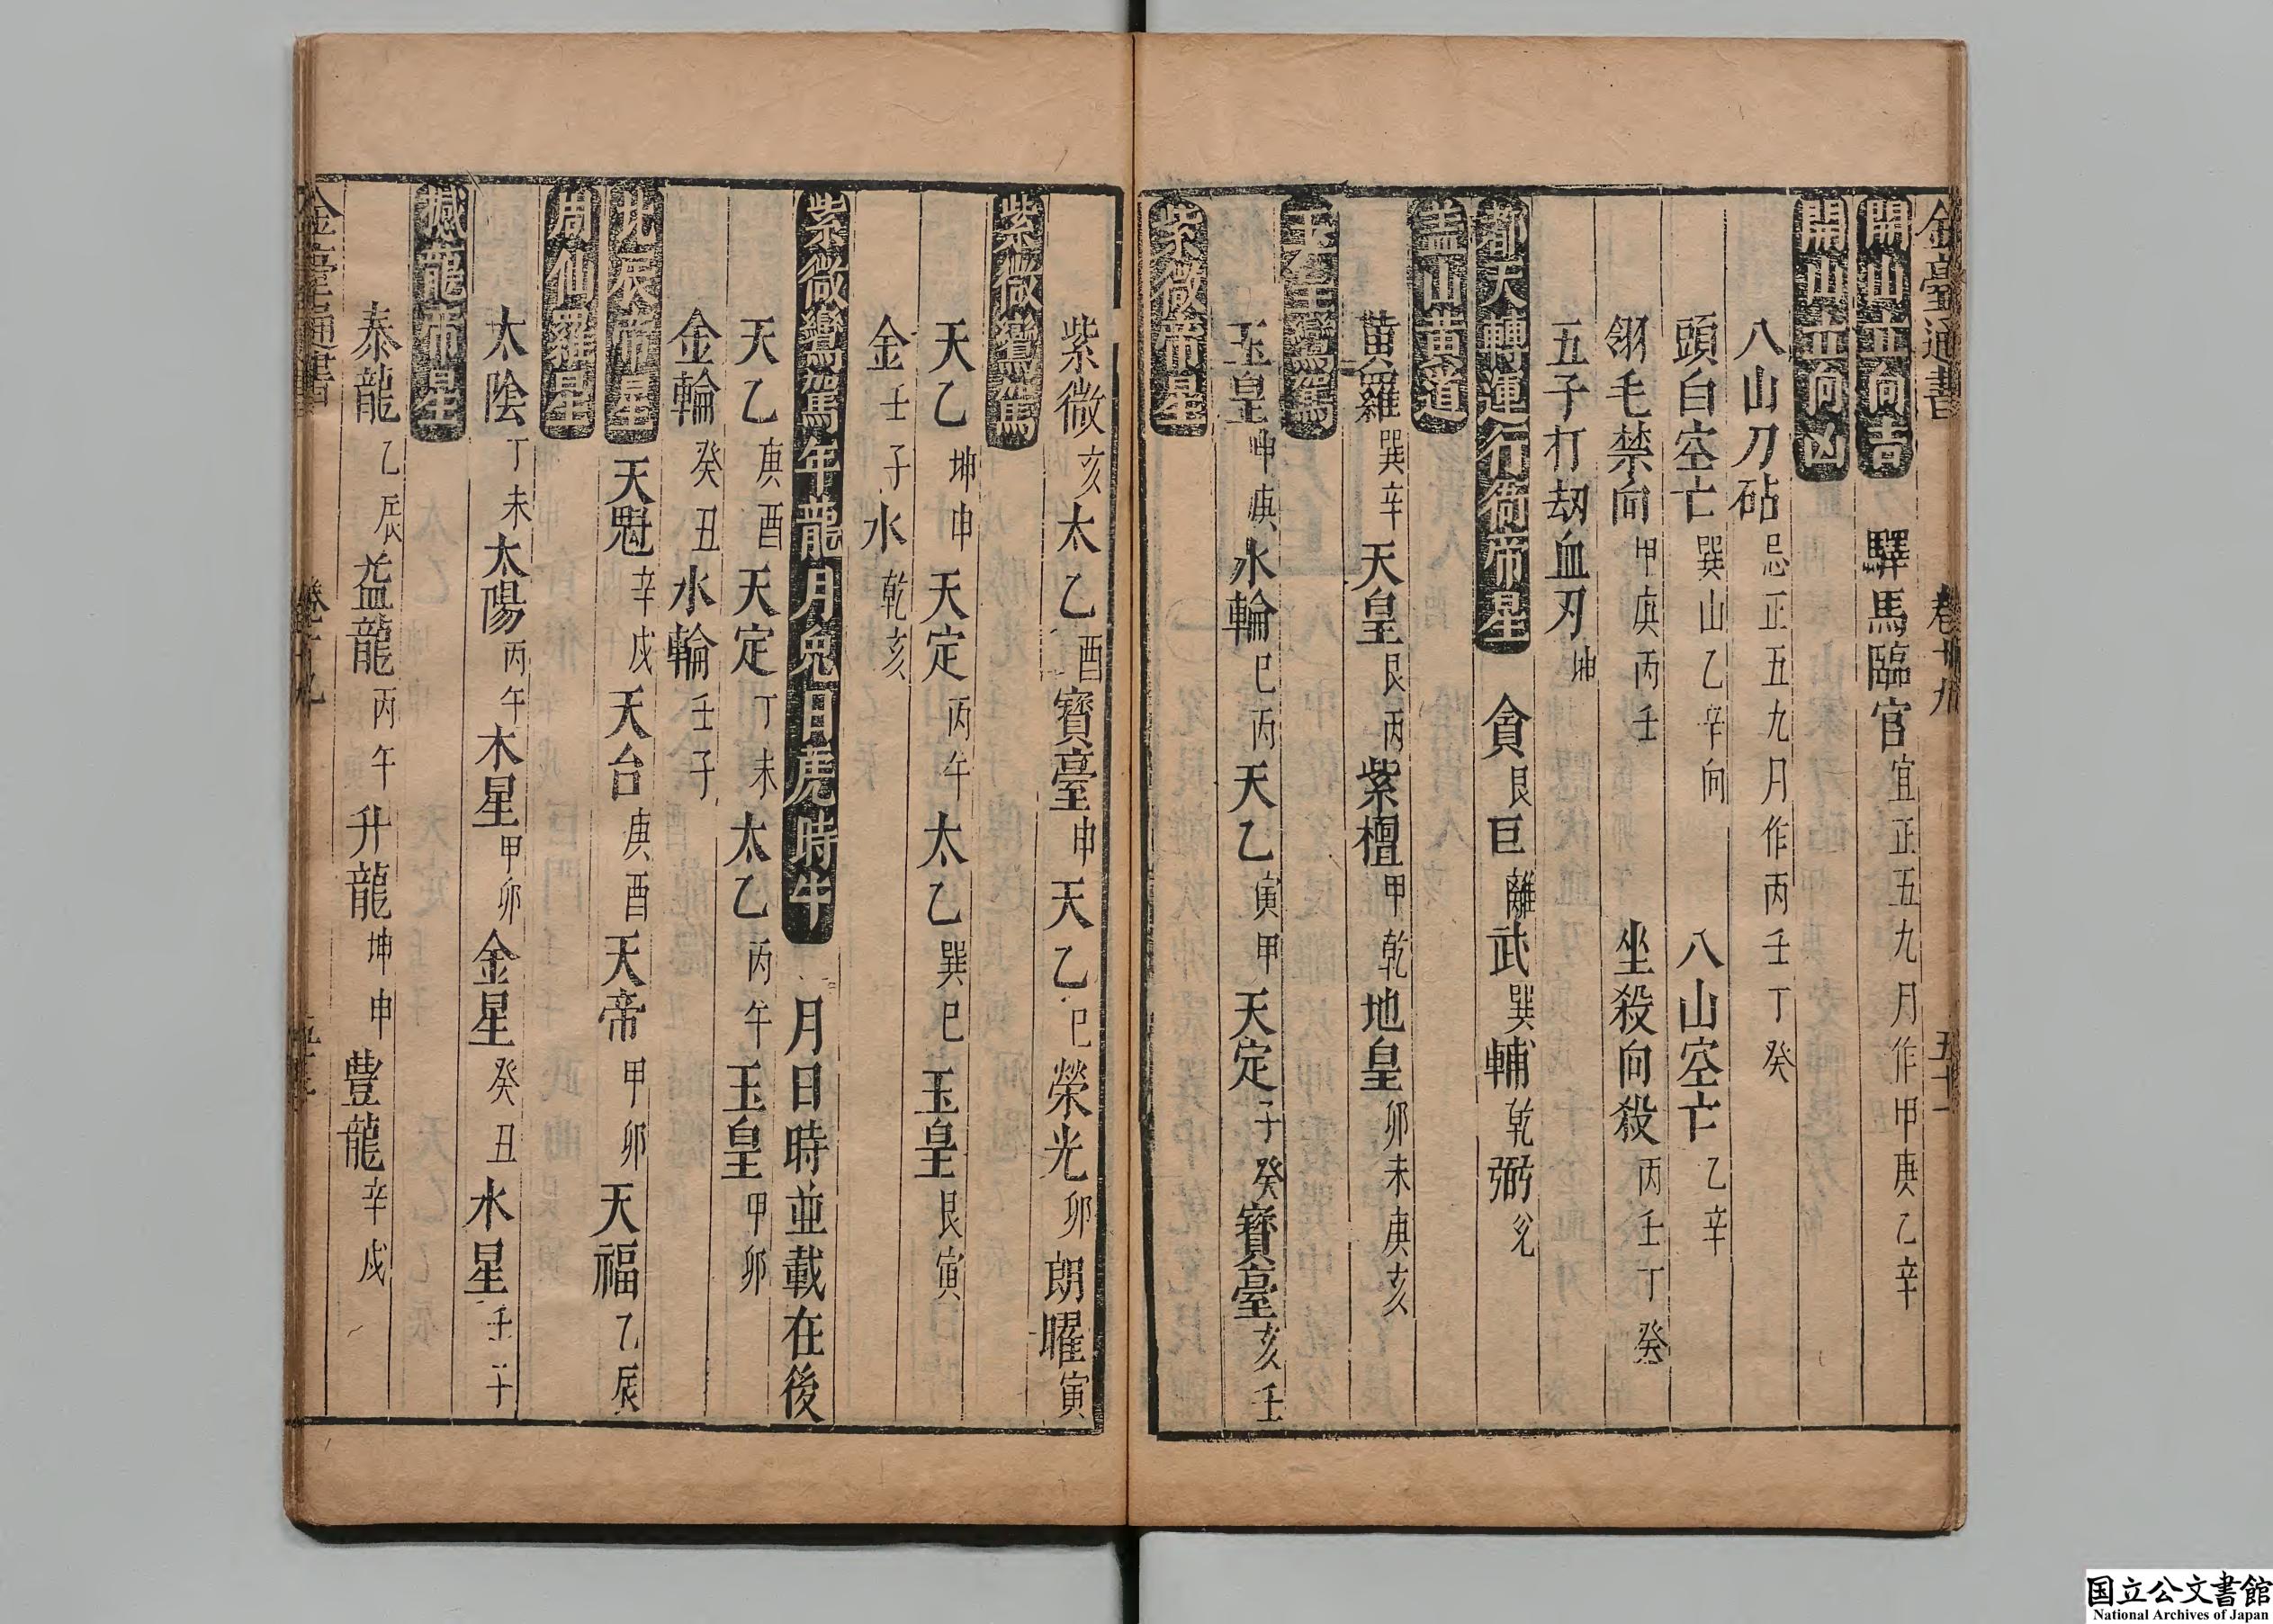 金臺通書 卷十九 五十一
開山立向吉 驛馬臨官宜正五九月作甲庚乙辛
開山立向凶
八山刀砧忌正五九月作丙壬丁癸
頭白空亡巽山乙辛向 八山空亡乙辛
翎毛禁向甲庚丙壬 坐殺向殺丙壬丁癸
五子打劫血刃坤
都天轉運行衙帝星 貪艮巨離武巽輔乾弼兊
盖山黄道
黄羅巽辛天皇艮丙紫檀甲乾地皇卯未庚亥
玉皇鑾駕
玉皇坤庚水輪巳丙天乙寅甲天定子癸寳臺亥壬
紫微帝星
紫微亥太乙酉寳臺申天乙巳榮光卯朗曜寅
紫微鑾駕
天乙坤申天定丙午太乙巽巳玉皇艮寅
金壬子水乾亥
紫微鸞駕年龍月兔日虎時牛 月日時並載在後
天乙庚酉天定丁未太乙丙午玉皇甲卯
金輪癸丑水輪壬子
九辰帝星 天魁辛戍天台庚酉天帝甲卯天福乙辰
周仙羅星
太陰丁未太陽丙午木星甲卯金星癸丑水星壬子
撼龍帝星
泰龍乙辰益龍丙午升龍坤申豊龍辛戍
金臺通書 卷十九
国立公文書館
National Archives of Japan